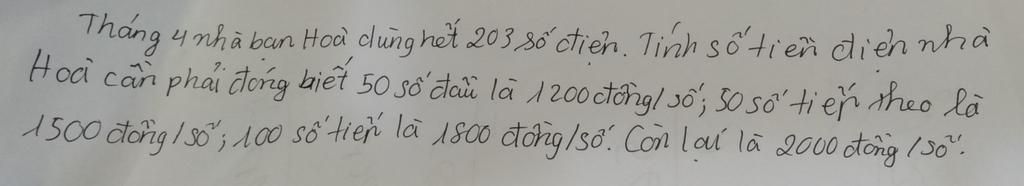 Tháng 4 nhà bạn Hoà dùng hết 203 số điện. Tính số tiền điện nhà
Hoà cần phải đóng biết 50 số đầu là 1200 đồng/số; 50 số tiếp theo là
1500 đồng/số; 100 số tiếp là 1800 đồng/số. Còn lại là 2000 đồng/số.